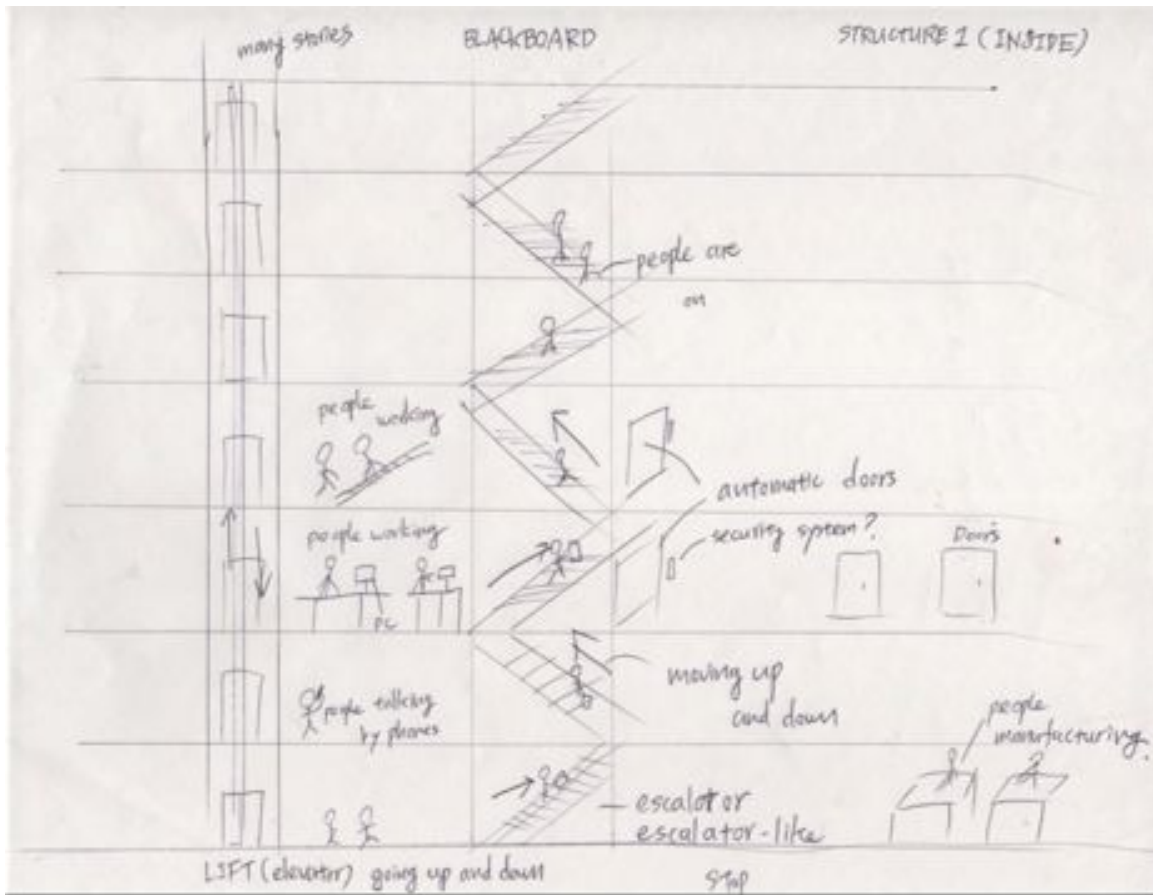 many stories
BLACKBOARD
STRUCTURE 1 (INSIDE)
people are
on
people
working
automatic doors
people working
security system?
Doors
PC
moving up
and down
people talking
by phones
people
manufacturing.
escalotor
escalator-like
LIFT (elevator) going up and down
STOP